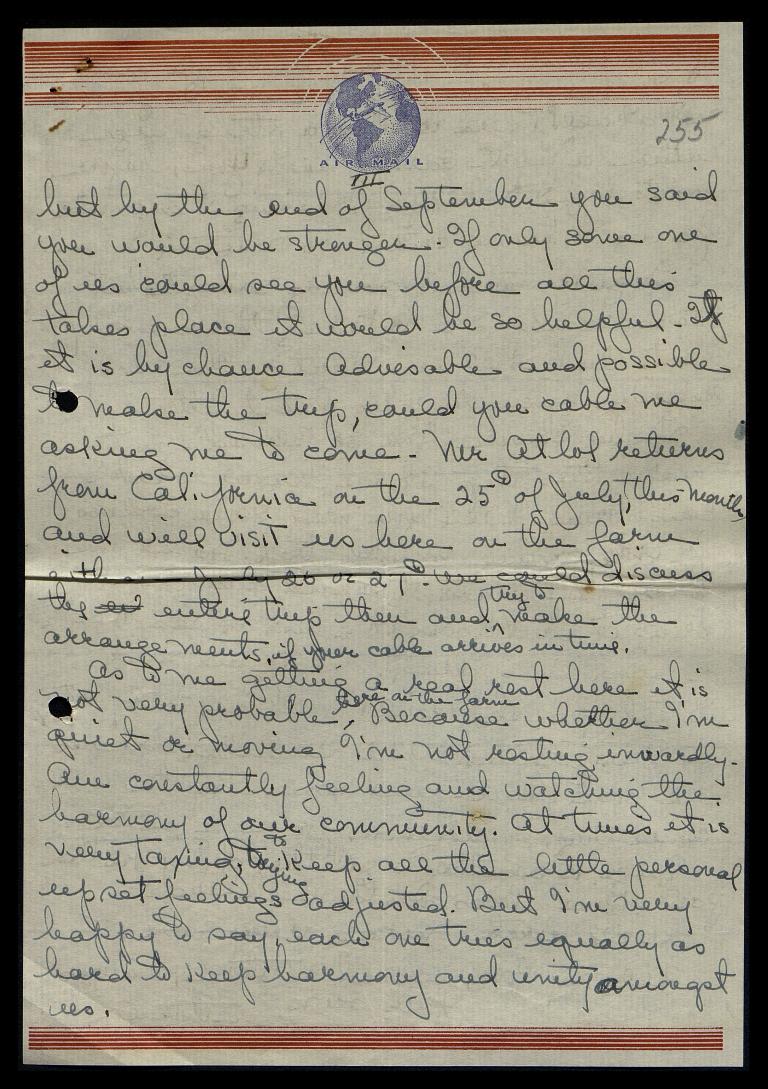 255
AIR MAIL
III
but by the end of September you said
you would be stronger. If only some one
of us could see you before all this
takes place it would be so helpful. If
it is by chance advisable and possible
to make the trip, could you cable me
asking me to come. Mr Atlol returns
from California on the 25th of July, this month,
and will visit us here on the farm
either July 26 or 27th. We could discuss
the entire trip then and try to make the
arrangements, if your cable arrives in time.
As to me getting a real rest here it is
not very probable, here on the farm, Because whether I'm
quiet or moving I'm not resting inwardly.
Am constantly feeling and watching the
harmony of our community. At times it is
very taxing, trying to keep all the little personal
upset feelings adjusted. But I'm very
happy to say, each one tries equally as
hard to keep harmony and unity amongst
us.